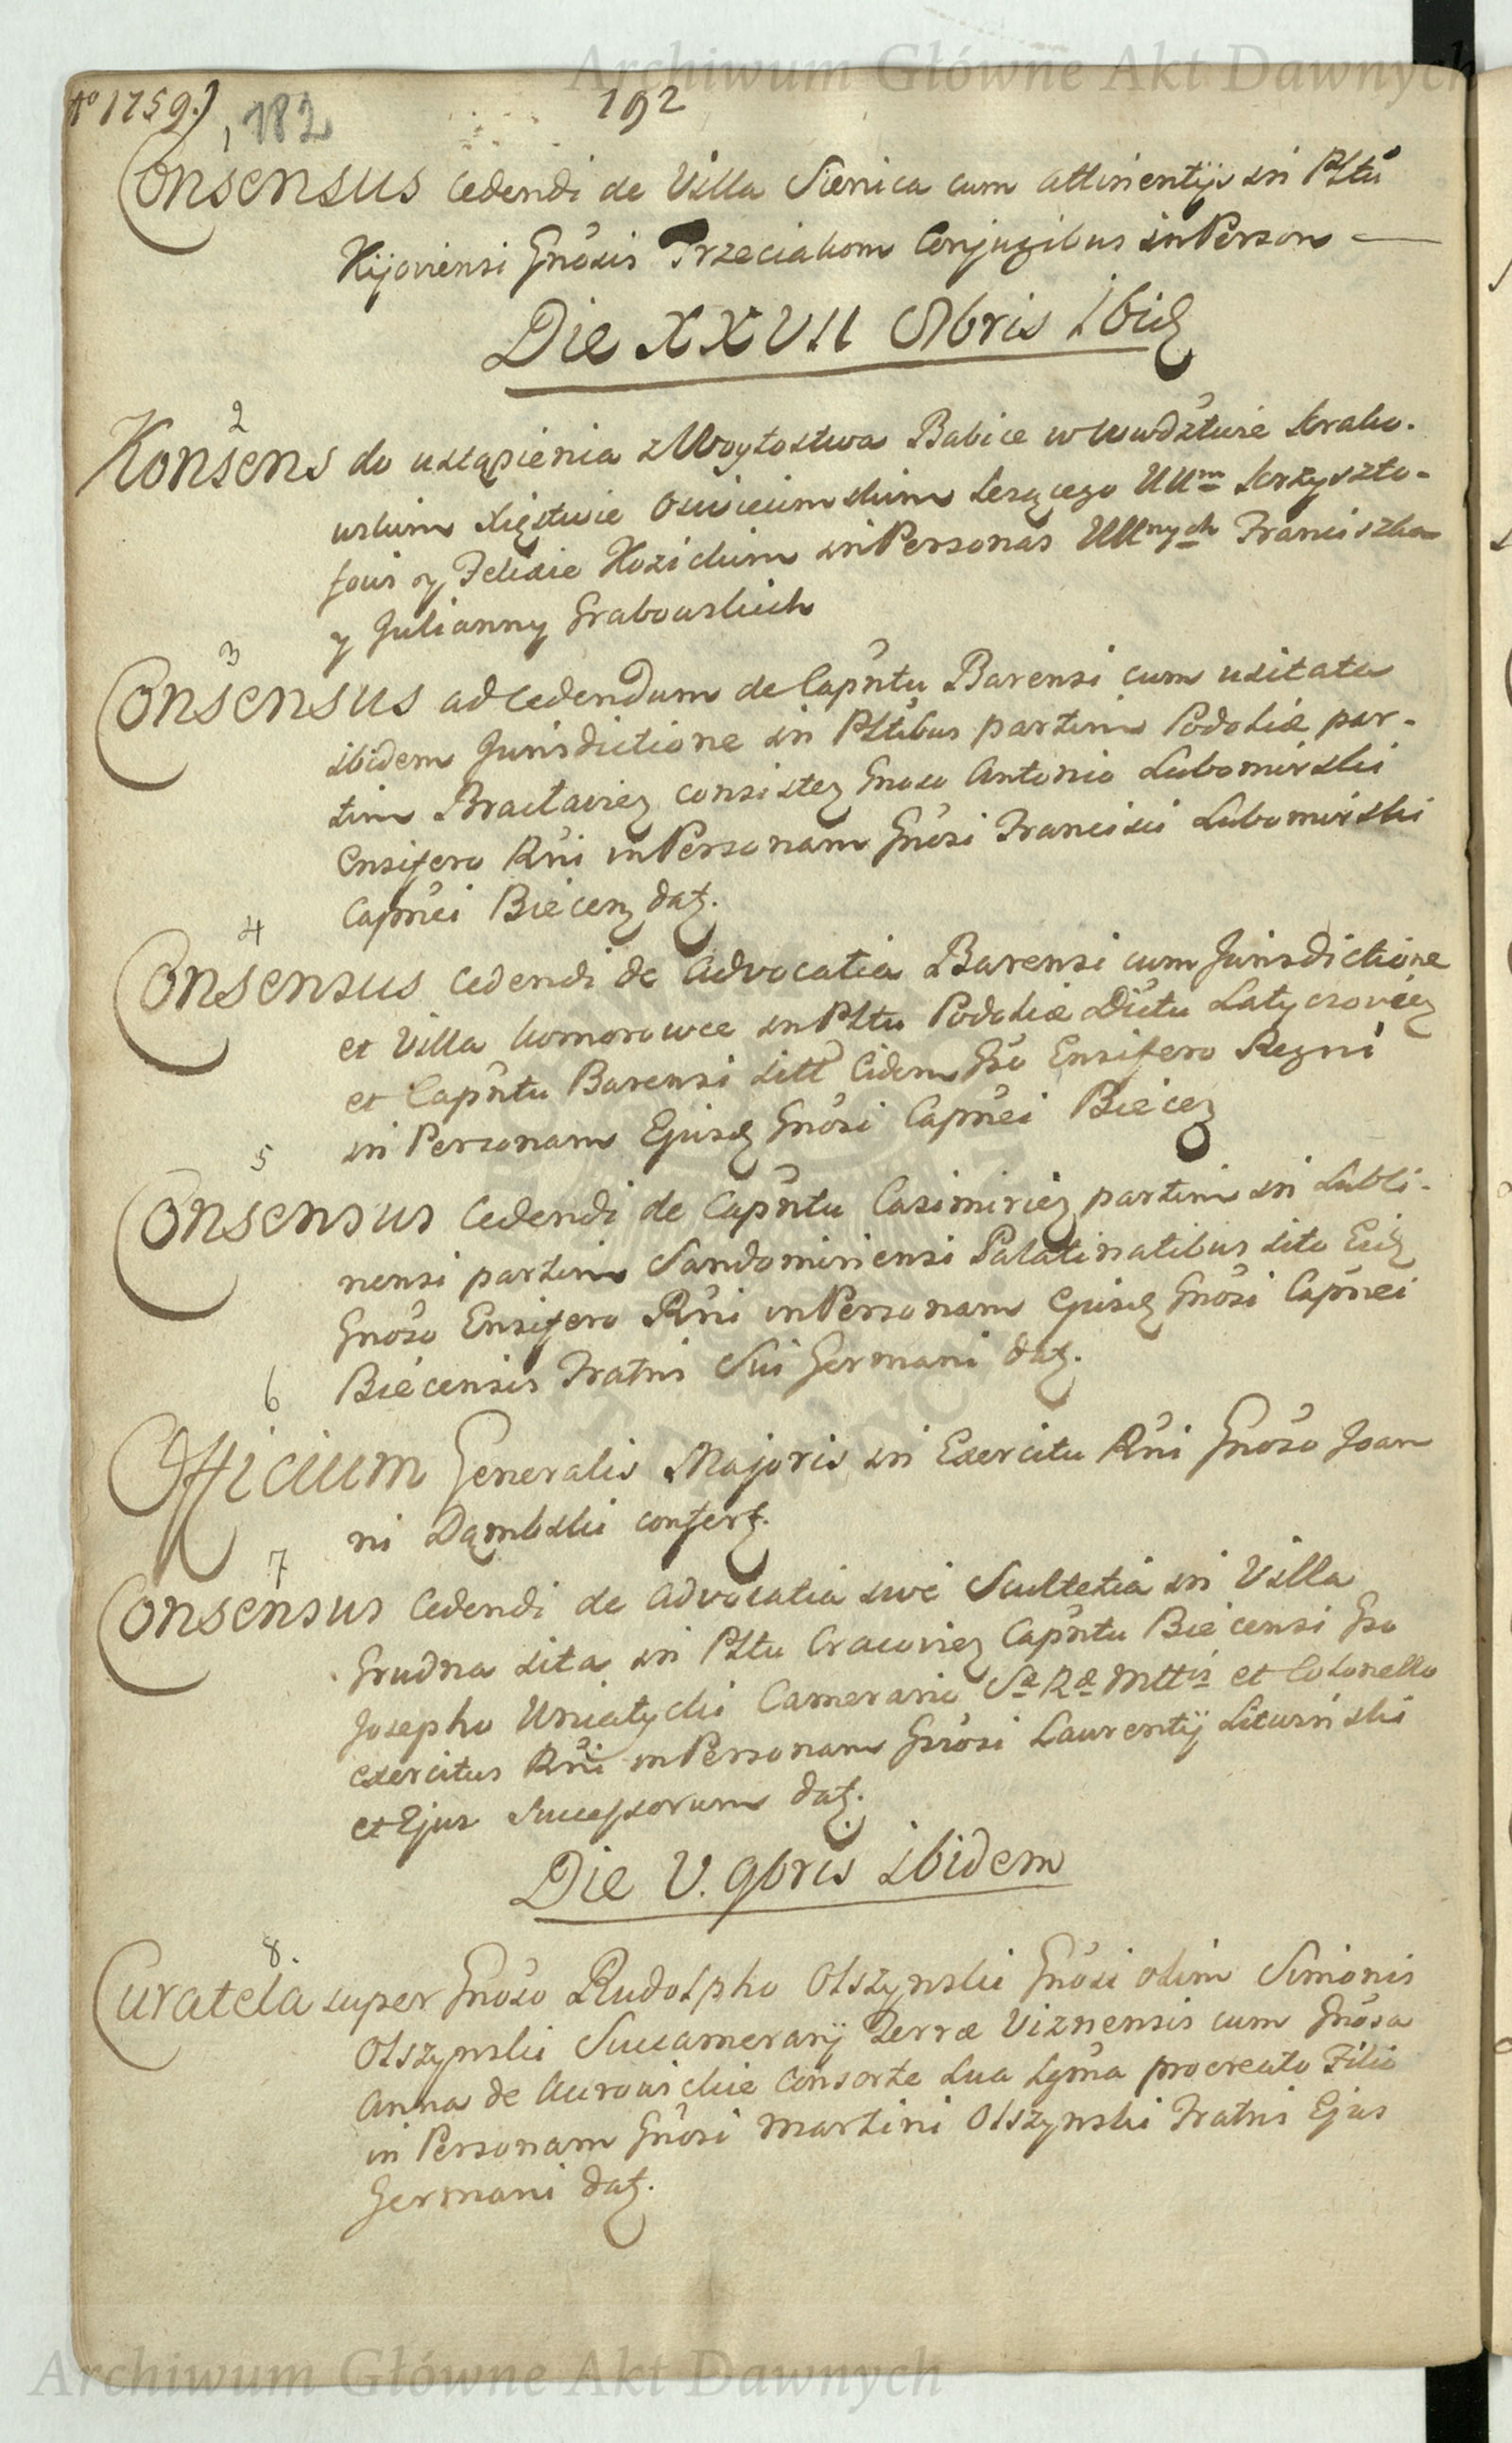 Archiwum Główne Akt Dawnych
Aº 1759.) 182 192
1
Consensus cedendi de Villa Sienica cum attinentijs in Pltũ
Kijoviensi Gnõsis Trzeciakom Conjugibus in Person
Die XXVII 8bris Ibid
2
Konsens do ustąpienia z Woytostwa Babice w Wwdztwie Krako-
wskim Xięstwie Oswiecimskim Lezącego UUm Krzyszto-
fowi y Felixie Kozickim in Personas UUnych Franciszka
y Julianny Grabowskich
3
Consensus ad cedendum de Capñtu Barensi cum usitata
ibidem Jurisdictione in Pltibus partim Podoliæ par-
tim Braclavien consisten Gnoso Antonio Lubomirski
Ensifero Rñi in Personam Gnõsi Francisci Lubomirski
Capñei Biecen dat.
4
Consensus cedendi de Advocatia Barensi cum Jurisdictione
et Villa Komorowce in Pltu Podoliæ Dictu Latyczovien
et Capñtu Barensi sitt Eidem Gso Ensifero Regni
in Personam Ejusd Gnõsi Capñei Biecen
5
Consensus Cedendi de Capñtu Casimirien partim in Lubli-
nensi partim Sandomiriensi Palatinatibus sito Eid
Gnõso Ensifero Rñi in Personam Ejusd Gnõsi Capñei
Biecensis Fratris Sui Germani dat.
6
Officium Generalis Majoris in Exercitu Rñi Gnõso Joan
ni Dąmbski confert.
7
Consensus Cedendi de Advocatia sive Scultetia in Villa
Grudna sita in Pltu Cracovien Capñtu Biecensi Gso
Josepho Uniatycki Camerario Sæ Ræ Mttis et Colonello
exercitus Rñi in Personam Gnõsi Laurentij Litwinski
et Ejus Successorum dat.
Die V. 9bris Ibidem
8.
Curatela super Gnõso Rudolpho Olszynski Gnõsi olim Simonis
Olszynski Succamerarij Terræ Viznensis cum Gnõsa
Anna de Kurowickie Consorte sua Lgma procreato Filio
in Personam Gnõsi Martini Olszynski Fratris Ejus
Germani dat.
Archiwum Główne Akt Dawnych